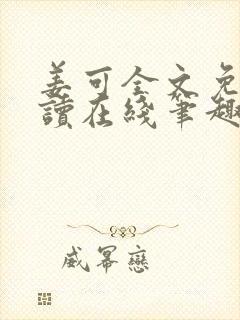 姜可全文免
讀在綫筆趣
威幂戀